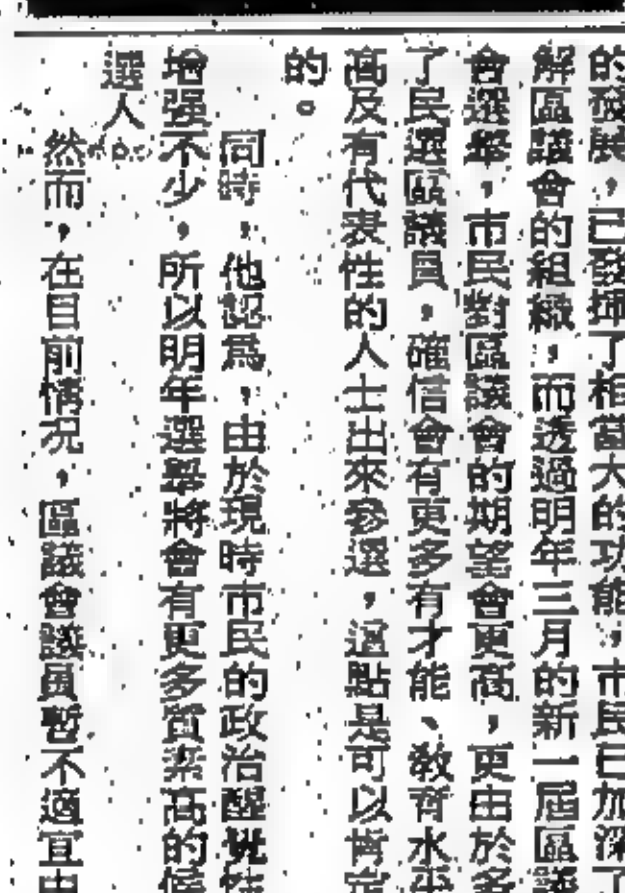 的發展，已發揮了相當大的功能，市民已加深了
解區議會的組織，而透過明年三月的新一屆區議
會選舉，市民對區議會的期望會更高，更由於多
了民選區議員，確信會有更多有才能、敎育水平
高及有代表性的人士出來參選，這點是可以肯定
的。
同時，他認爲，由於現時市民的政治醒覺性
增强不少，所以明年選舉將會有更多質素高的候
選人。
然而，在目前情况，區議會議員暫不適宜由